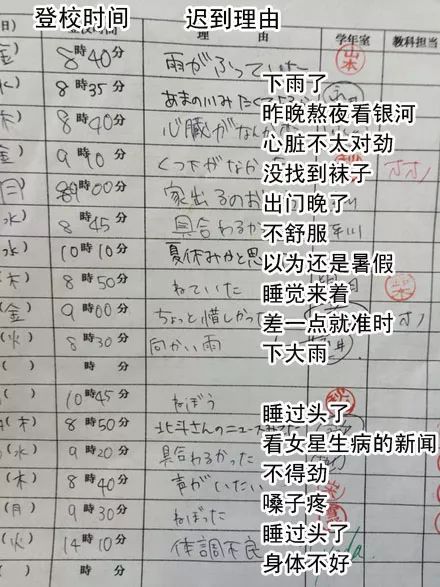 登校时间 迟到理由
日) 登校时间 理 由 学年室 教科担当
金) 8時40分 雨がふっていた 下雨了 山本
水) 8時35分 あまの川みたくて 昨晚熬夜看银河
木) 8時40分 心臓がなんか 心脏不太对劲
金) 9時10分 くつ下がなか 没找到袜子
月) 9時00分 家出るのお 出门晚了
水) 8時45分 具合わるか 不舒服
水) 10時10分 夏休みかと思 以为还是暑假
木) 8時50分 ねていた 睡觉来着
(金) 9時00分 ちょっと惜しかっ 差一点就准时
(火) 8時30分 向かい雨 下大雨
( ) 時 分
( ) 10時45分 ねぼう 睡过头了
(木) 8時50分 北斗さんのニュース 看女星生病的新闻
(水) 9時20分 具合わるかった 不得劲
(木) 8時40分 声がいたい 嗓子疼
(月) 9時30分 ねぼった 睡过头了
(火) 14時10分 体調不良 身体不好